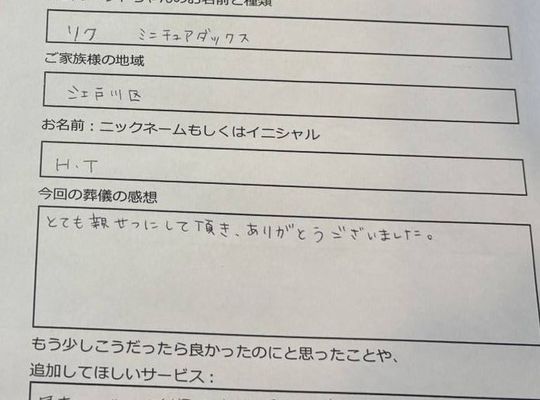 ちゃんのお名前と種類
リク ミニチュアダックス
ご家族様の地域
江戸川区
お名前：ニックネームもしくはイニシャル
H.T
今回の葬儀の感想
とても親せつにして頂き、ありがとうございました。
もう少しこうだったら良かったのにと思ったことや、
追加してほしいサービス：